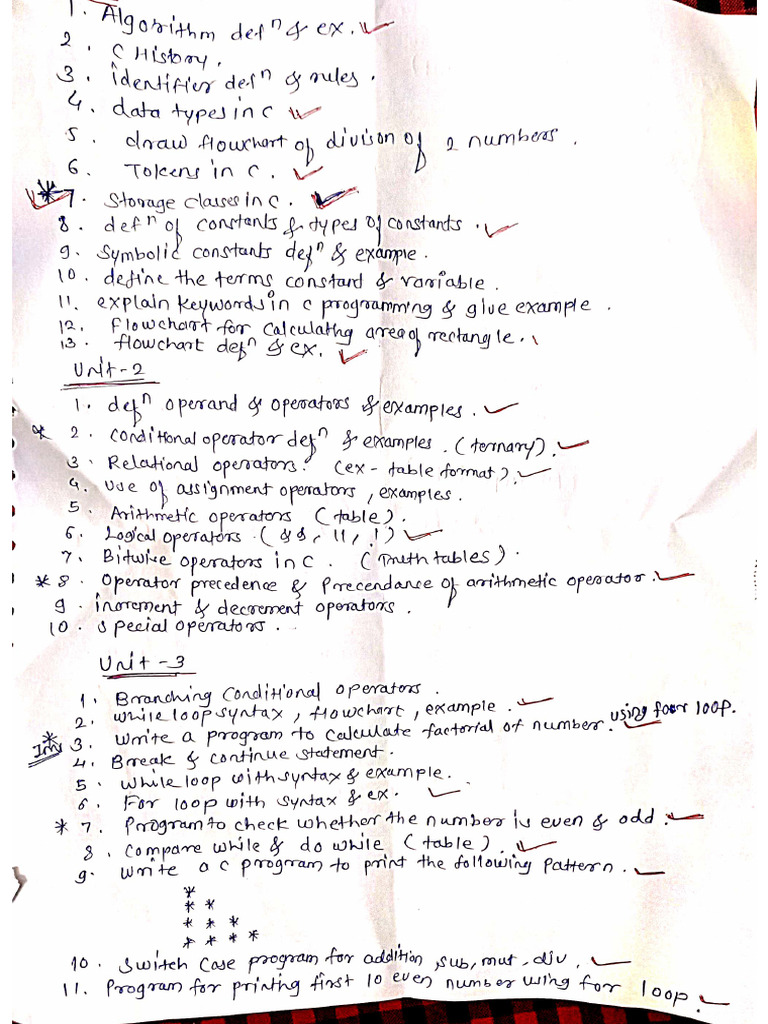 1. Algorithm defⁿ & ex.
2. C History.
3. identifier defⁿ & rules.
4. data types in C
5. draw flowchart of divison of 2 numbers.
6. Tokens in C.
*7. Storage classes in C.
8. defⁿ of constants & types of constants.
9. Symbolic constants defⁿ & example.
10. define the terms constand & variable.
11. explain keywords in C programming & give example.
12. flowchart for calculating area of rectangle.
13. flowchart defⁿ & ex.
Unit-2
1. defⁿ operand & operators & examples.
* 2. conditional operator defⁿ & examples. (ternary).
3. Relational operators. (ex-table format).
4. use of assignment operators, examples.
5. Arithmetic operators (table).
6. Logical operators. (&&, ||, !)
7. Bitwise operators in C. (Truth tables).
* 8. Operator precedence & Precendance of arithmetic operator.
9. increment & decrement operators.
10. special operators.
Unit-3
1. Branching conditional operators.
2. while loop syntax, flowchart, example.
* Imp 3. Write a program to calculate factorial of number. using foor loop.
4. Break & continue statement.
5. while loop with syntax & example.
6. For loop with syntax & ex.
* 7. Program to check whether the number is even & odd.
8. compare while & do while (table).
9. write a c program to print the following pattern.
*
* *
* * *
* * * *
10. switch case program for addition, sub, mut, div.
11. Program for printing first 10 even number using for loop.